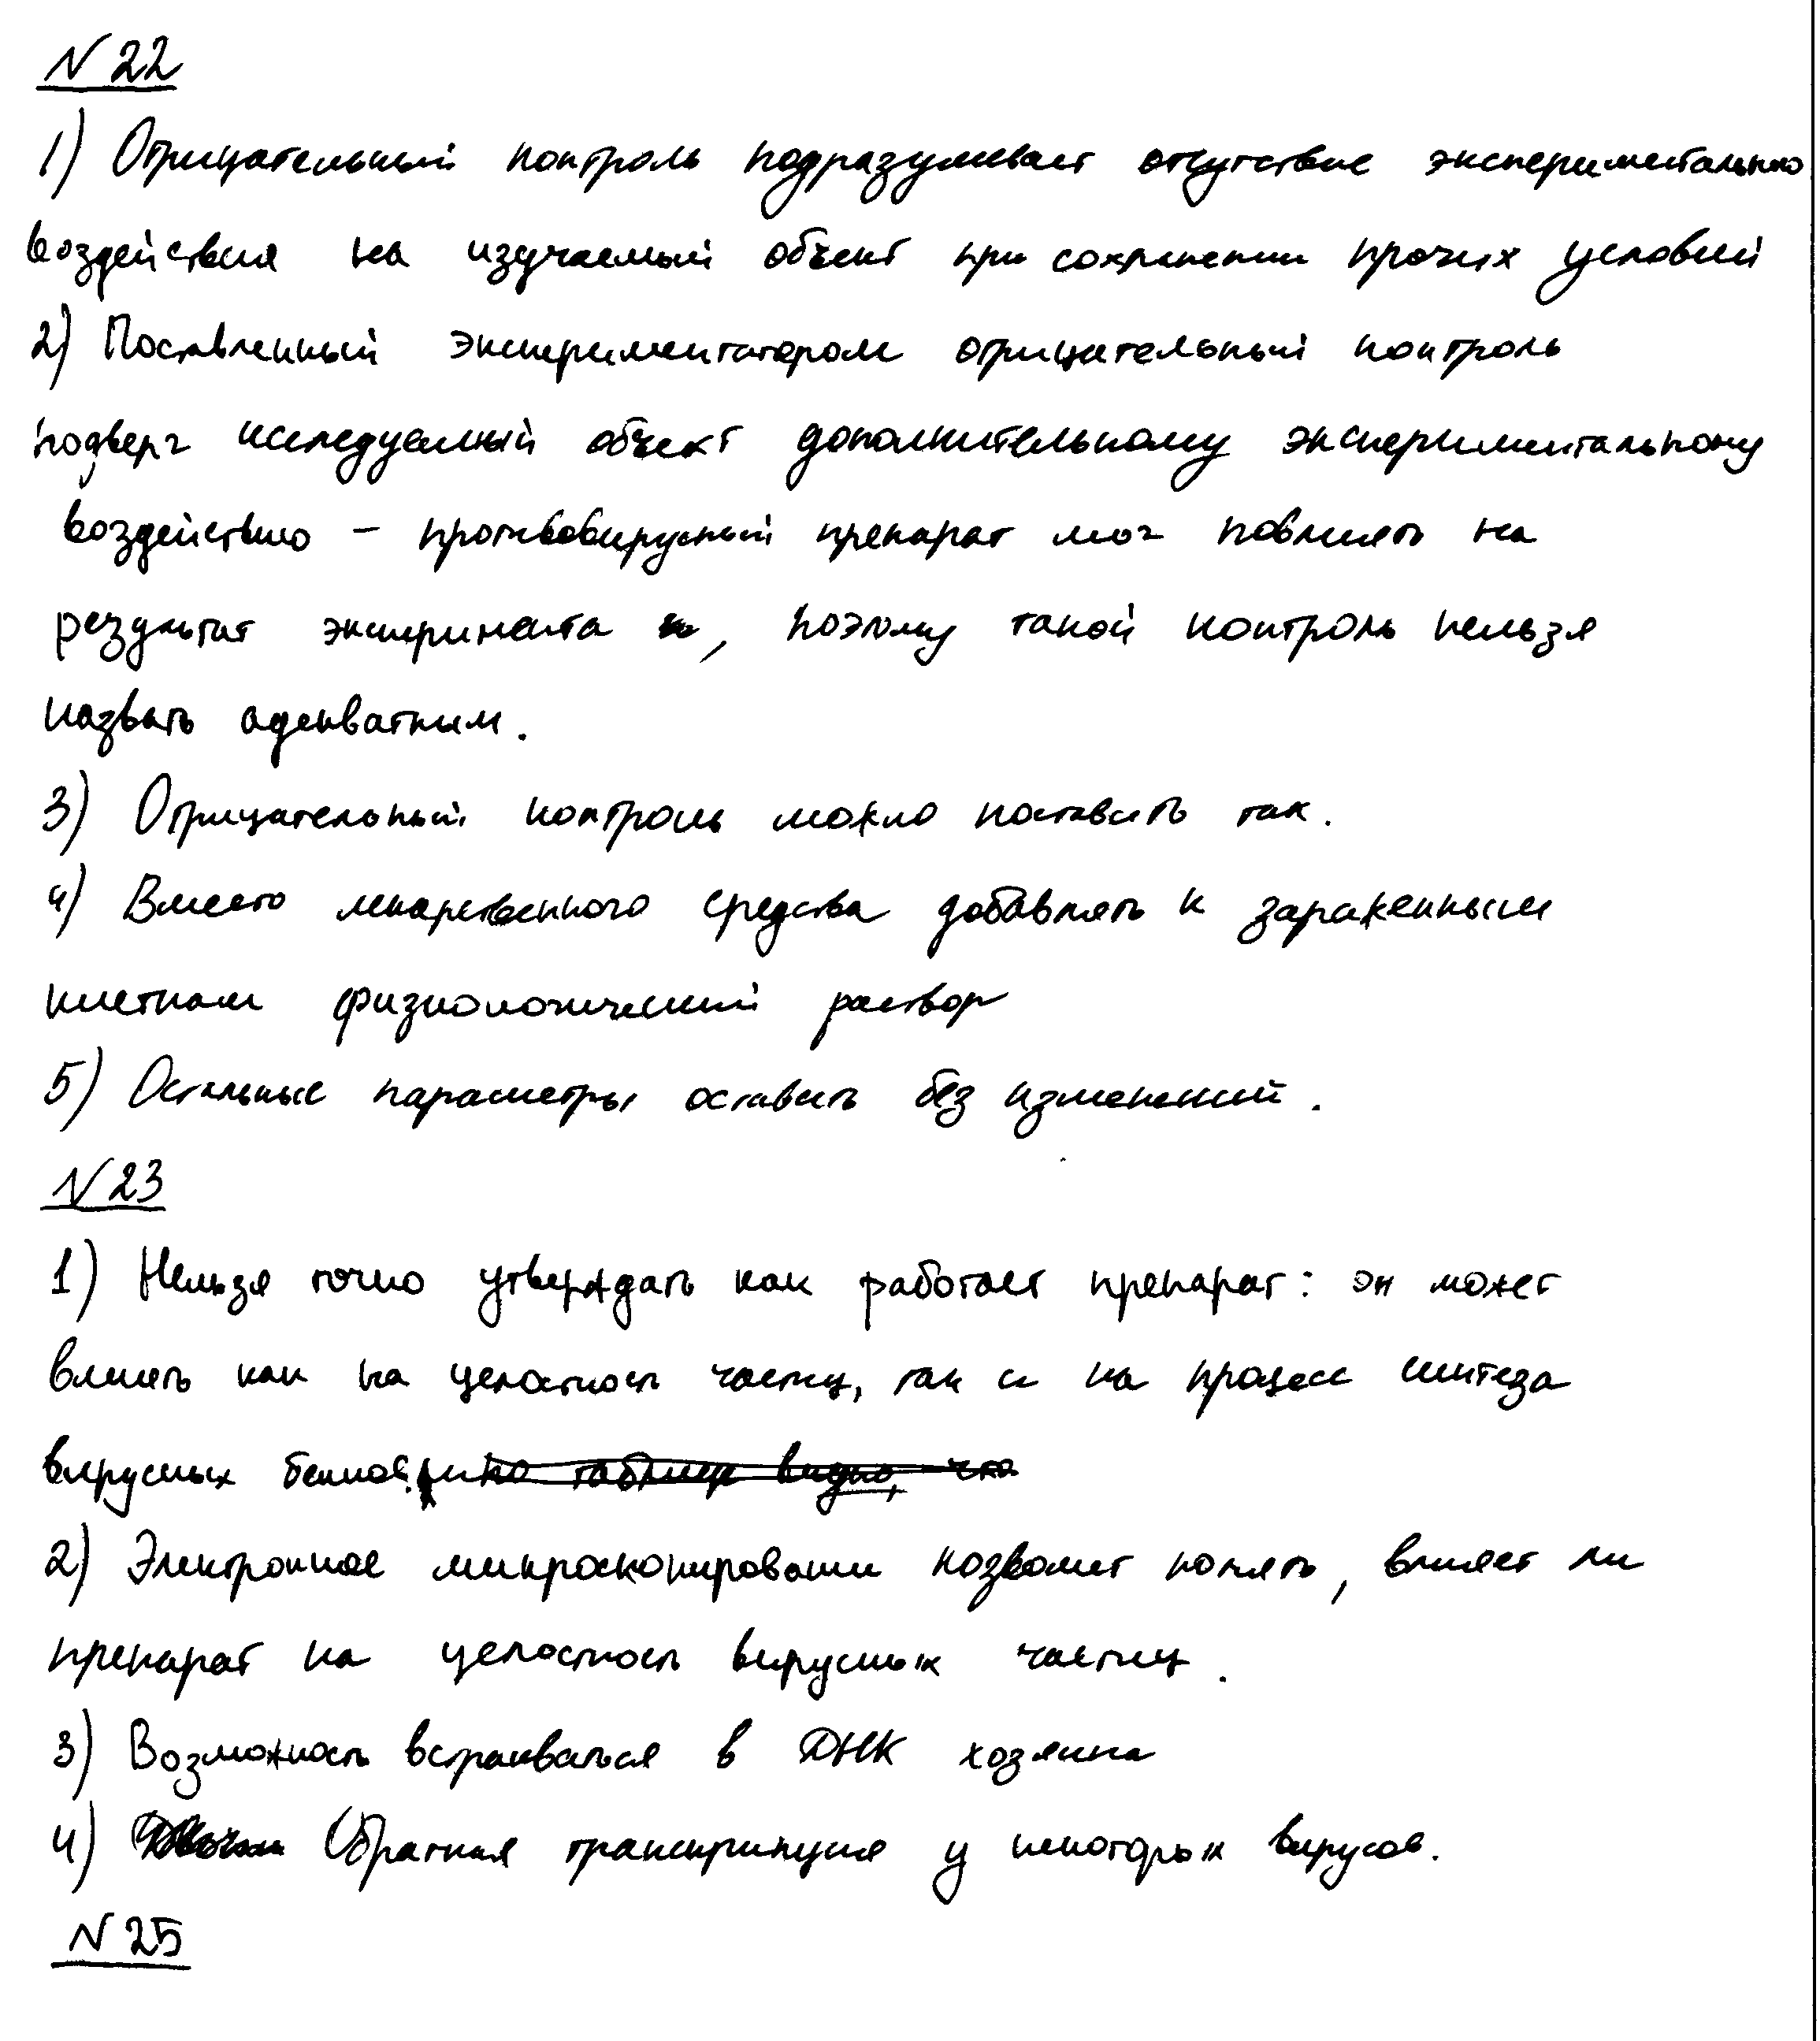 N 22
1) Отрицательный контроль подразумевает отсутствие экспериментально
воздействия на изучаемый объект при сохранении прочих условий
2) Поставленный экспериментатором отрицательный контроль
подверг исследуемый объект дополнительному экспериментальному
воздействию – противовирусный препарат мог повлиять на
результат эксперимента, поэтому такой контроль нельзя
назвать адекватным.
3) Отрицательный контроль можно поставить так.
4) Вместо лекарственного средства добавлять к зараженным
клеткам физиологический раствор
5) Остальные параметры оставить без изменений.
N 23
1) Нельзя точно утверждать как работает препарат: он может
влиять как на целостность частиц, так и на процесс синтеза
вирусных белков. по таблице видно, что
2) Электронное микроскопирование позволит понять, влияет ли
препарат на целостность вирусных частиц.
3) Возможность встраиваться в ДНК хозяина
4) Обратная транскрипция у некоторых вирусов.
N 25